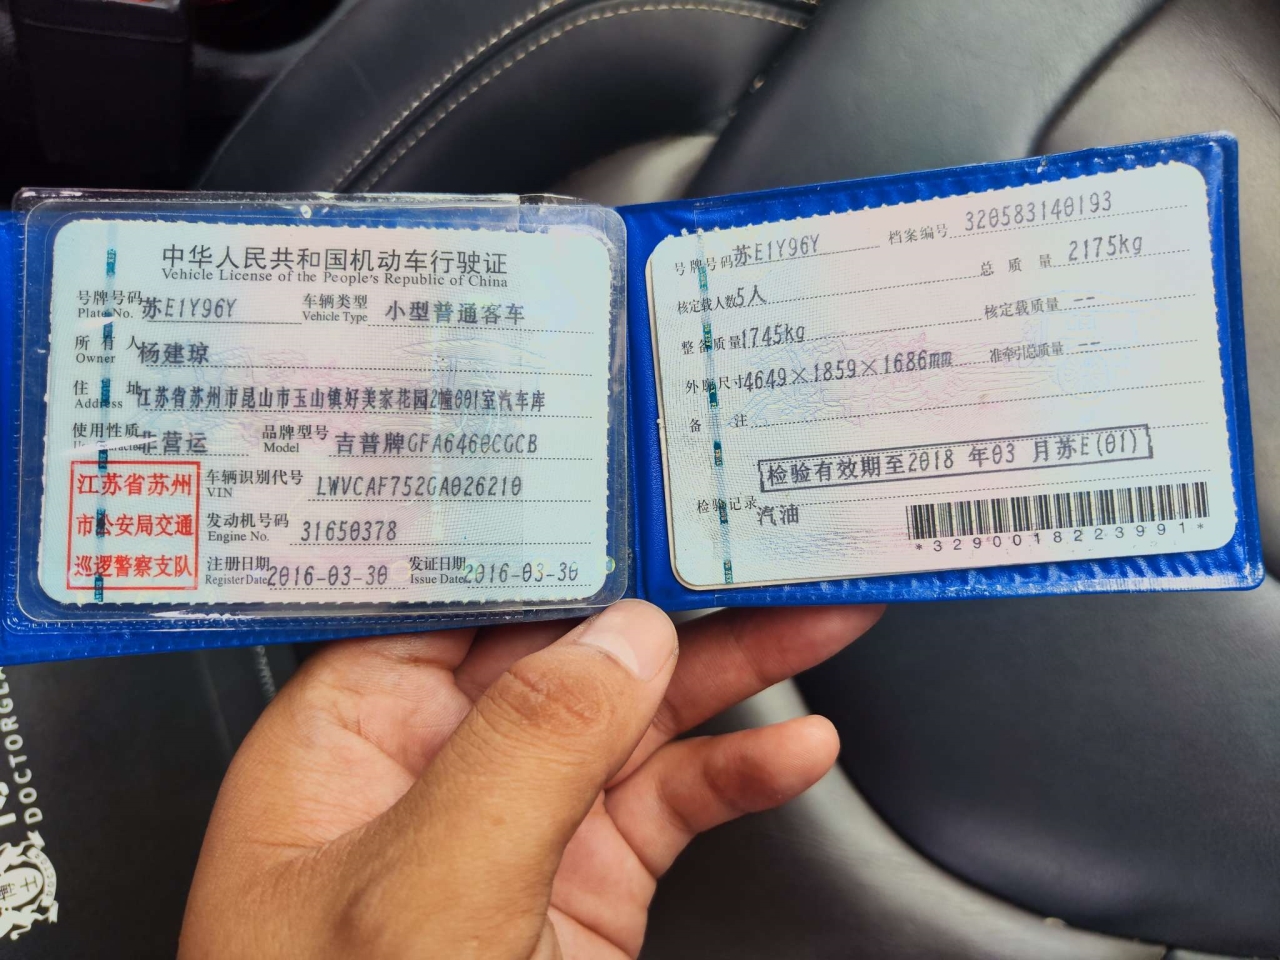 中华人民共和国机动车行驶证
Vehicle License of the People's Republic of China
号牌号码 苏E1Y96Y 车辆类型 小型普通客车
Plate No. Vehicle Type
所有人 杨建琼
Owner
住址 江苏省苏州市昆山市玉山镇好美家花园2幢601室汽车库
Address
使用性质 非营运 品牌型号 吉普牌GFA6460CGCB
Model
江苏省苏州
市公安局交通
巡逻警察支队
车辆识别代号 LWVCAF752GA026210
VIN
发动机号码 31650378
Engine No.
注册日期 2016-03-30 发证日期 2016-03-30
Register Date Issue Date
号牌号码 苏E1Y96Y 档案编号 320583140193
核定载人数 5人 总质量 2175kg
整备质量 1745kg 核定载质量 --
外廓尺寸 4649×1859×1686mm 准牵引总质量 --
备注
检验有效期至2018 年03 月苏E(01)
检验记录
汽油
*3290018223991*
DOCTORGE
博士